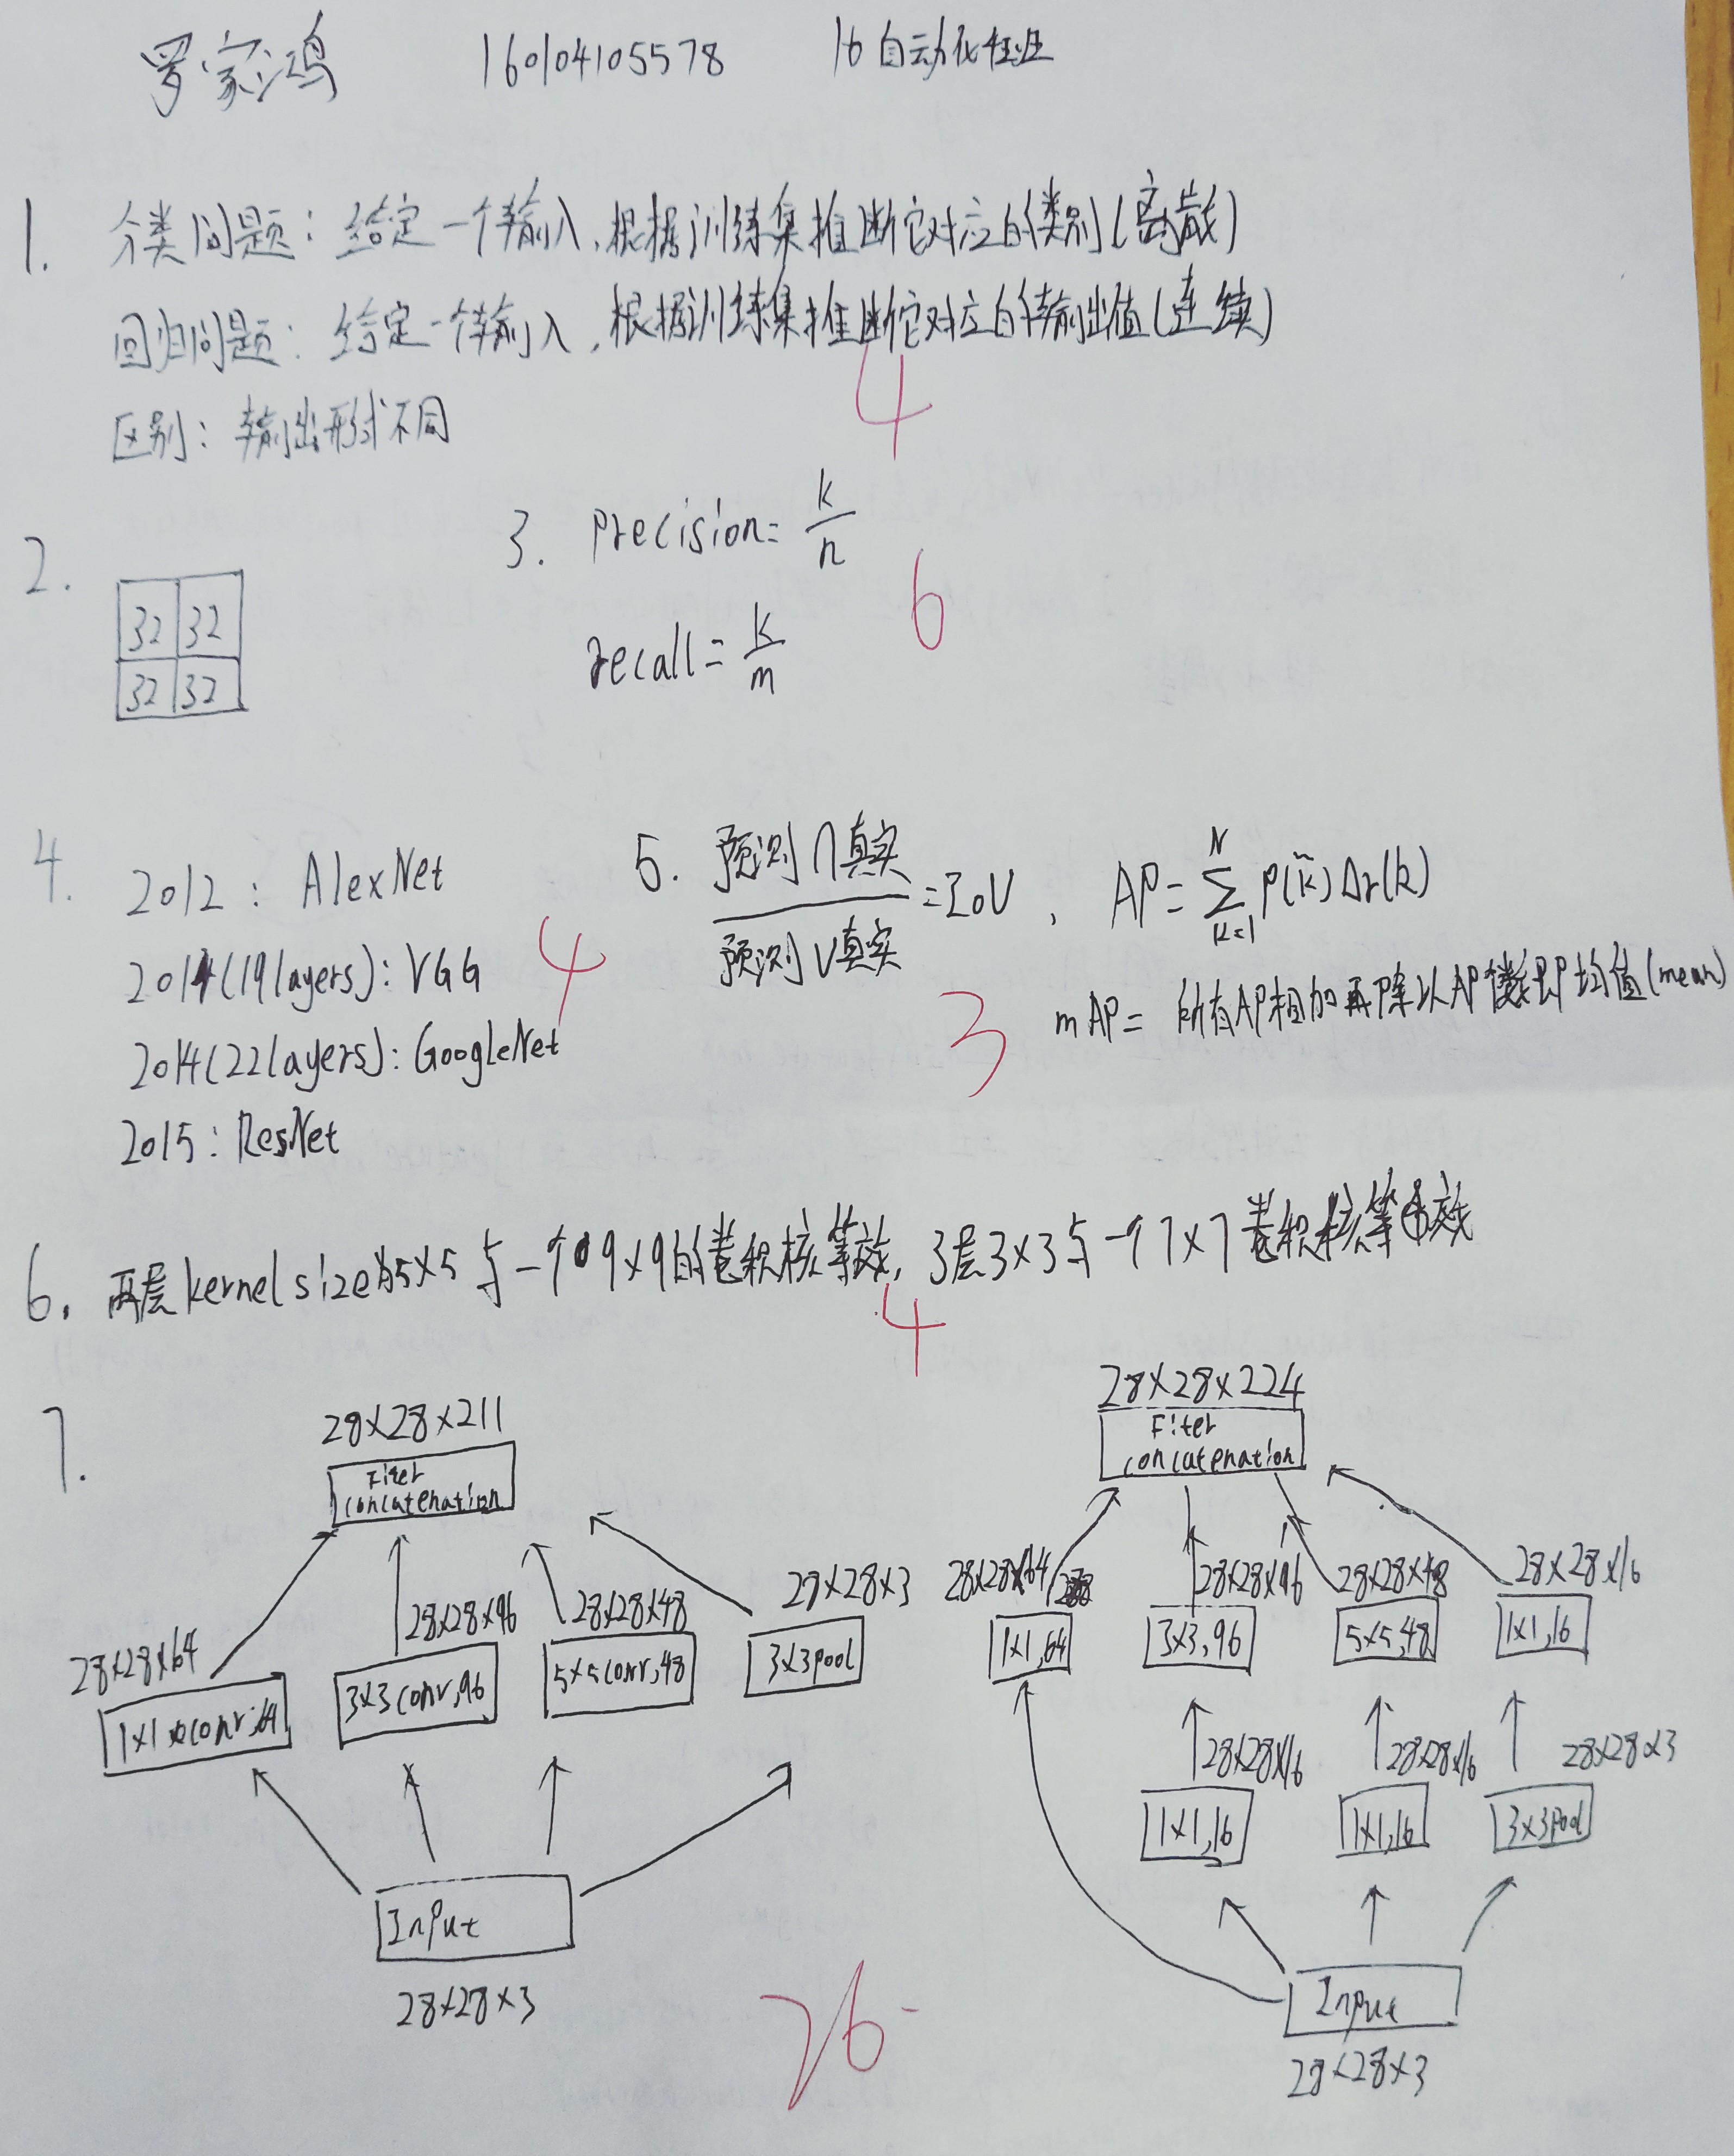 罗家鸿 16104105578 16自动化
1. 分类问题：给定一个输入，根据训练集推断它对应的类别（离散）
回归问题：给定一个输入，根据训练集推断它对应的输出值（连续）
4
区别：输出形式不同
2.
32 32
32 32
3. precision = k/n
recall = k/m
6
4. 2012：AlexNet
2014(19layers)：VGG
2014(22layers)：GoogleNet
2015：ResNet
4
5. 预测∩真实/预测∪真实 = IoU，AP = ∑_{k=1}^{N} p(k̃)Δr(k)
mAP = 所有AP相加再除以AP 即均值(mean)
3
6. 两层kernel size为5×5与一个9×9的卷积核等效，3层3×3与一个7×7卷积核等效
4
7.
28×28×211
Fiter
concatenation
28×28×64
28×28×96
28×28×48
28×28×3
1×1 conv,64
3×3conv,96
5×5conv,48
3×3pool
Input
28×28×3
28×28×224
Fiter
concatenation
28×28×64
28×28×96
28×28×48
28×28×16
1×1,64
3×3,96
5×5,48
1×1,16
28×28×16
28×28×16
28×28×3
1×1,16
1×1,16
3×3pool
Input
28×28×3
26